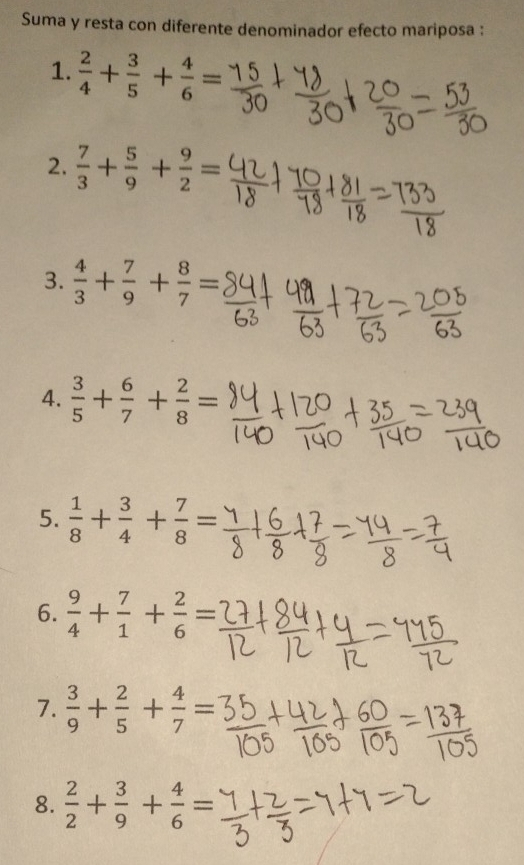 Suma y resta con diferente denominador efecto mariposa :
1. 2/4 + 3/5 + 4/6 = 15/30 + 18/30 + 20/30 = 53/30
2. 7/3 + 5/9 + 9/2 = 42/18 + 10/18 + 81/18 = 133/18
3. 4/3 + 7/9 + 8/7 = 84/63 + 49/63 + 72/63 = 205/63
4. 3/5 + 6/7 + 2/8 = 84/140 + 120/140 + 35/140 = 239/140
5. 1/8 + 3/4 + 7/8 = 1/8 + 6/8 + 7/8 = 14/8 = 7/4
6. 9/4 + 7/1 + 2/6 = 27/12 + 84/12 + 4/12 = 115/12
7. 3/9 + 2/5 + 4/7 = 35/105 + 42/105 + 60/105 = 137/105
8. 2/2 + 3/9 + 4/6 = 1/3 + 2/3 = 1 + 1 = 2